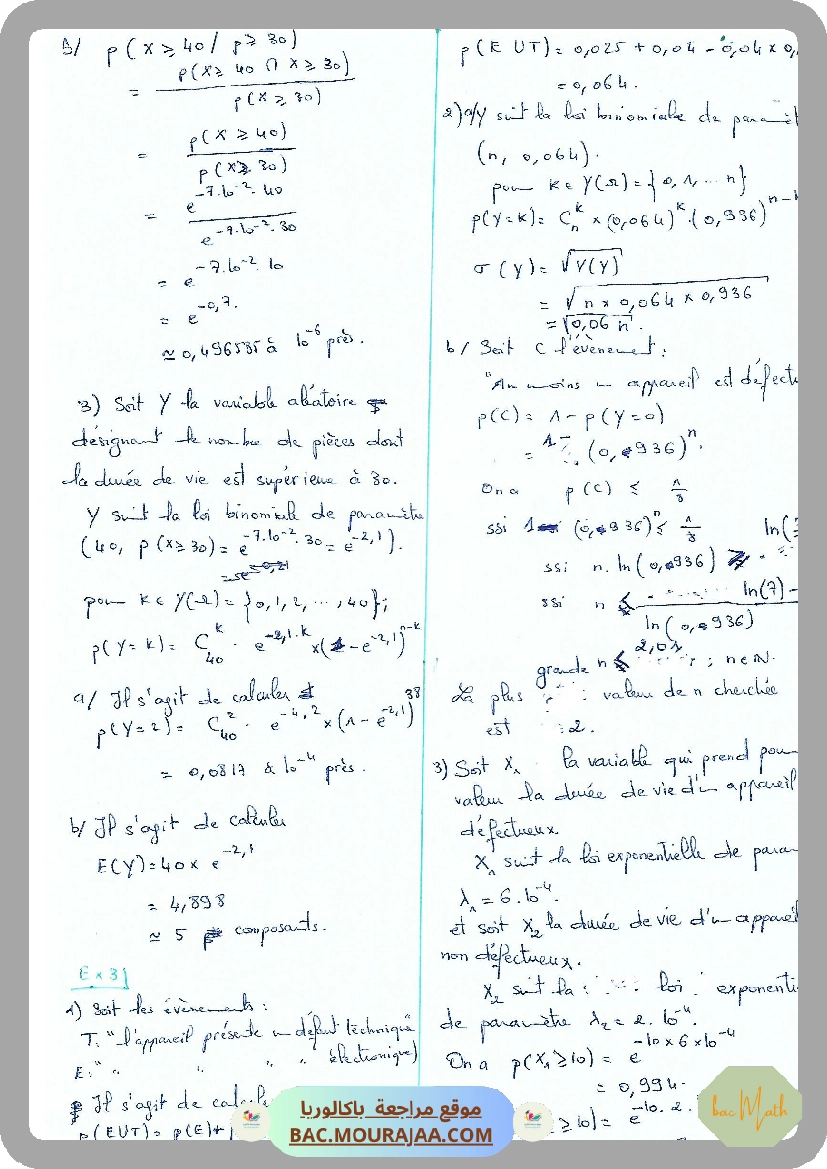 b/ p(X ≥ 40 / p ≥ 30)
= p(X ≥ 40 ∩ X ≥ 30) / p(X ≥ 30)
= p(X ≥ 40) / p(X ≥ 30)
= e^{-7.10^{-2}.40} / e^{-7.10^{-2}.30}
= e^{-7.10^{-2}.10}
= e^{-0,7}.
≃ 0,496585 à 10^{-6} près.
3) Soit Y la variable aléatoire
désignant le nombre de pièces dont
la durée de vie est supérieure à 30.
Y suit la loi binomiale de paramètre
(40, p(X ≥ 30) = e^{-7.10^{-2}.30} = e^{-2,1}).
pour k ∈ Y(Ω) = {0, 1, 2, ..., 40};
p(Y = k) = C_{40}^{k} . e^{-2,1.k} × (1 - e^{-2,1})^{n-k}
a/ Il s'agit de calculer
p(Y = 2) = C_{40}^{2} . e^{-4,2} × (1 - e^{-2,1})^{38}
= 0,0817 à 10^{-4} près.
b/ Il s'agit de calculer
E(Y) = 40 × e^{-2,1}
= 4,898
≃ 5 composants.
Ex 3
1) Soit les évènements :
T: "l'appareil présente un défaut technique"
E: " " " " électronique)
Il s'agit de
p(EUT) = p(E) +
p(E UT) = 0,025 + 0,04 - 0,04 × 0,
= 0,064.
2) a/ Y suit la loi binomiale de
(n, 0,064).
pour k ∈ Y(Ω) = {0, 1, ... n}
p(Y = k) = C_{n}^{k} × (0,064)^{k} . (0,936)^{n-
σ(Y) = √V(Y)
= √n × 0,064 × 0,936
= √0,06 n.
b/ Soit C l'évènement :
"Au moins un appareil est
p(C) = 1 - p(Y = 0)
= 1 - (0,936)^{n}.
On a p(C) ≤ 1/8
ssi 1 - (0,936)^{n} ≤ 1/8
ssi n. ln(0,936)
ssi n ≤ ln(7) - / ln(0,936)
n ≤ 2,01 ; n ∈ ℕ.
La plus grande valeur de n cherchée
est 2.
3) Soit X₁ la variable qui prend pour
valeur la durée de vie d'un appareil
défectueux.
X₁ suit la loi exponentielle de
λ₁ = 6.10^{-4}.
et soit X₂ la durée de vie d'un appareil
non défectueux.
X₂ suit la loi
de paramètre λ₂ = 2.10^{-4}.
On a p(X₁ ≥ 10) = e^{-10×6×10^{-4}}
= 0,994.
≥ 10) = e^{-10.2.
موقع مراجعة باكالوريا
BAC.MOURAJAA.COM
bac Math